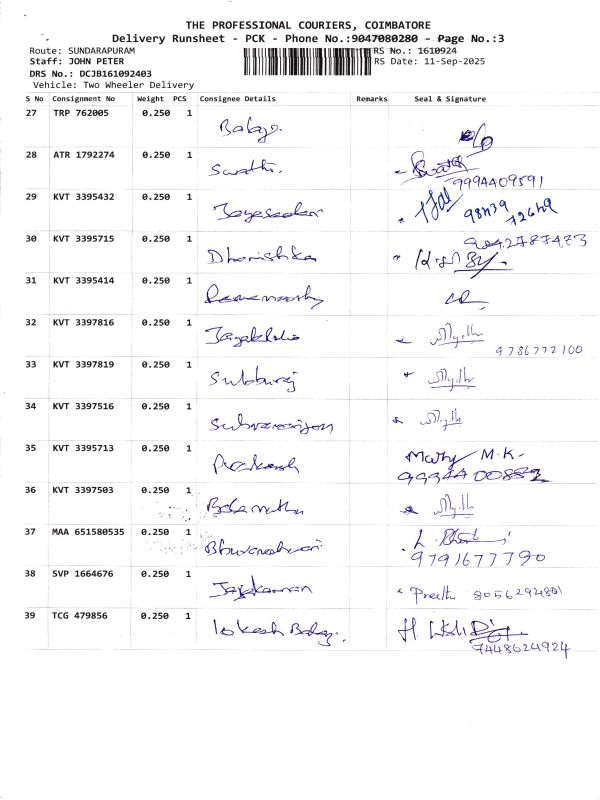 THE PROFESSIONAL COURIERS, COIMBATORE
Delivery Runsheet - PCK - Phone No.:9047080280 - Page No.:3
Route: SUNDARAPURAM RS No.: 1610924
Staff: JOHN PETER RS Date: 11-Sep-2025
DRS No.: DCJB161092403
Vehicle: Two Wheeler Delivery
S No Consignment No Weight PCS Consignee Details Remarks Seal & Signature
27 TRP 762005 0.250 1
Balaji.
28 ATR 1792274 0.250 1
Swathi. Swathi
9994409591
29 KVT 3395432 0.250 1
Jayasekar
30 KVT 3395715 0.250 1 9842787473
Dharishka
31 KVT 3395414 0.250 1
Ramamoorthy
32 KVT 3397816 0.250 1
9786772100
33 KVT 3397819 0.250 1
Subburaj
34 KVT 3397516 0.250 1
35 KVT 3395713 0.250 1
Prakash M.K.
36 KVT 3397503 0.250 1
Balamuthu
37 MAA 651580535 0.250 1
Bhuvaneshwari
9791677790
38 SVP 1664676 0.250 1
Jayakannan Preethi 8056294801
39 TCG 479856 0.250 1
lokesh Balaji.
7448624924